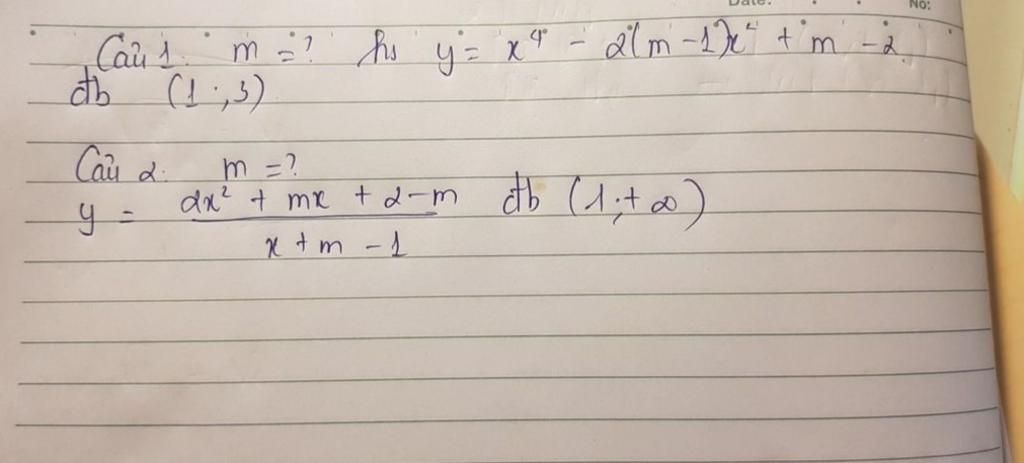 Date: No:
Câu 1. m = ? hs y = x⁴ - 2(m-1)x² + m - 2.
đb (1;3)
Câu 2. m = ?
y = (2x² + mx + 2-m)/(x + m - 1) đb (1;+∞)